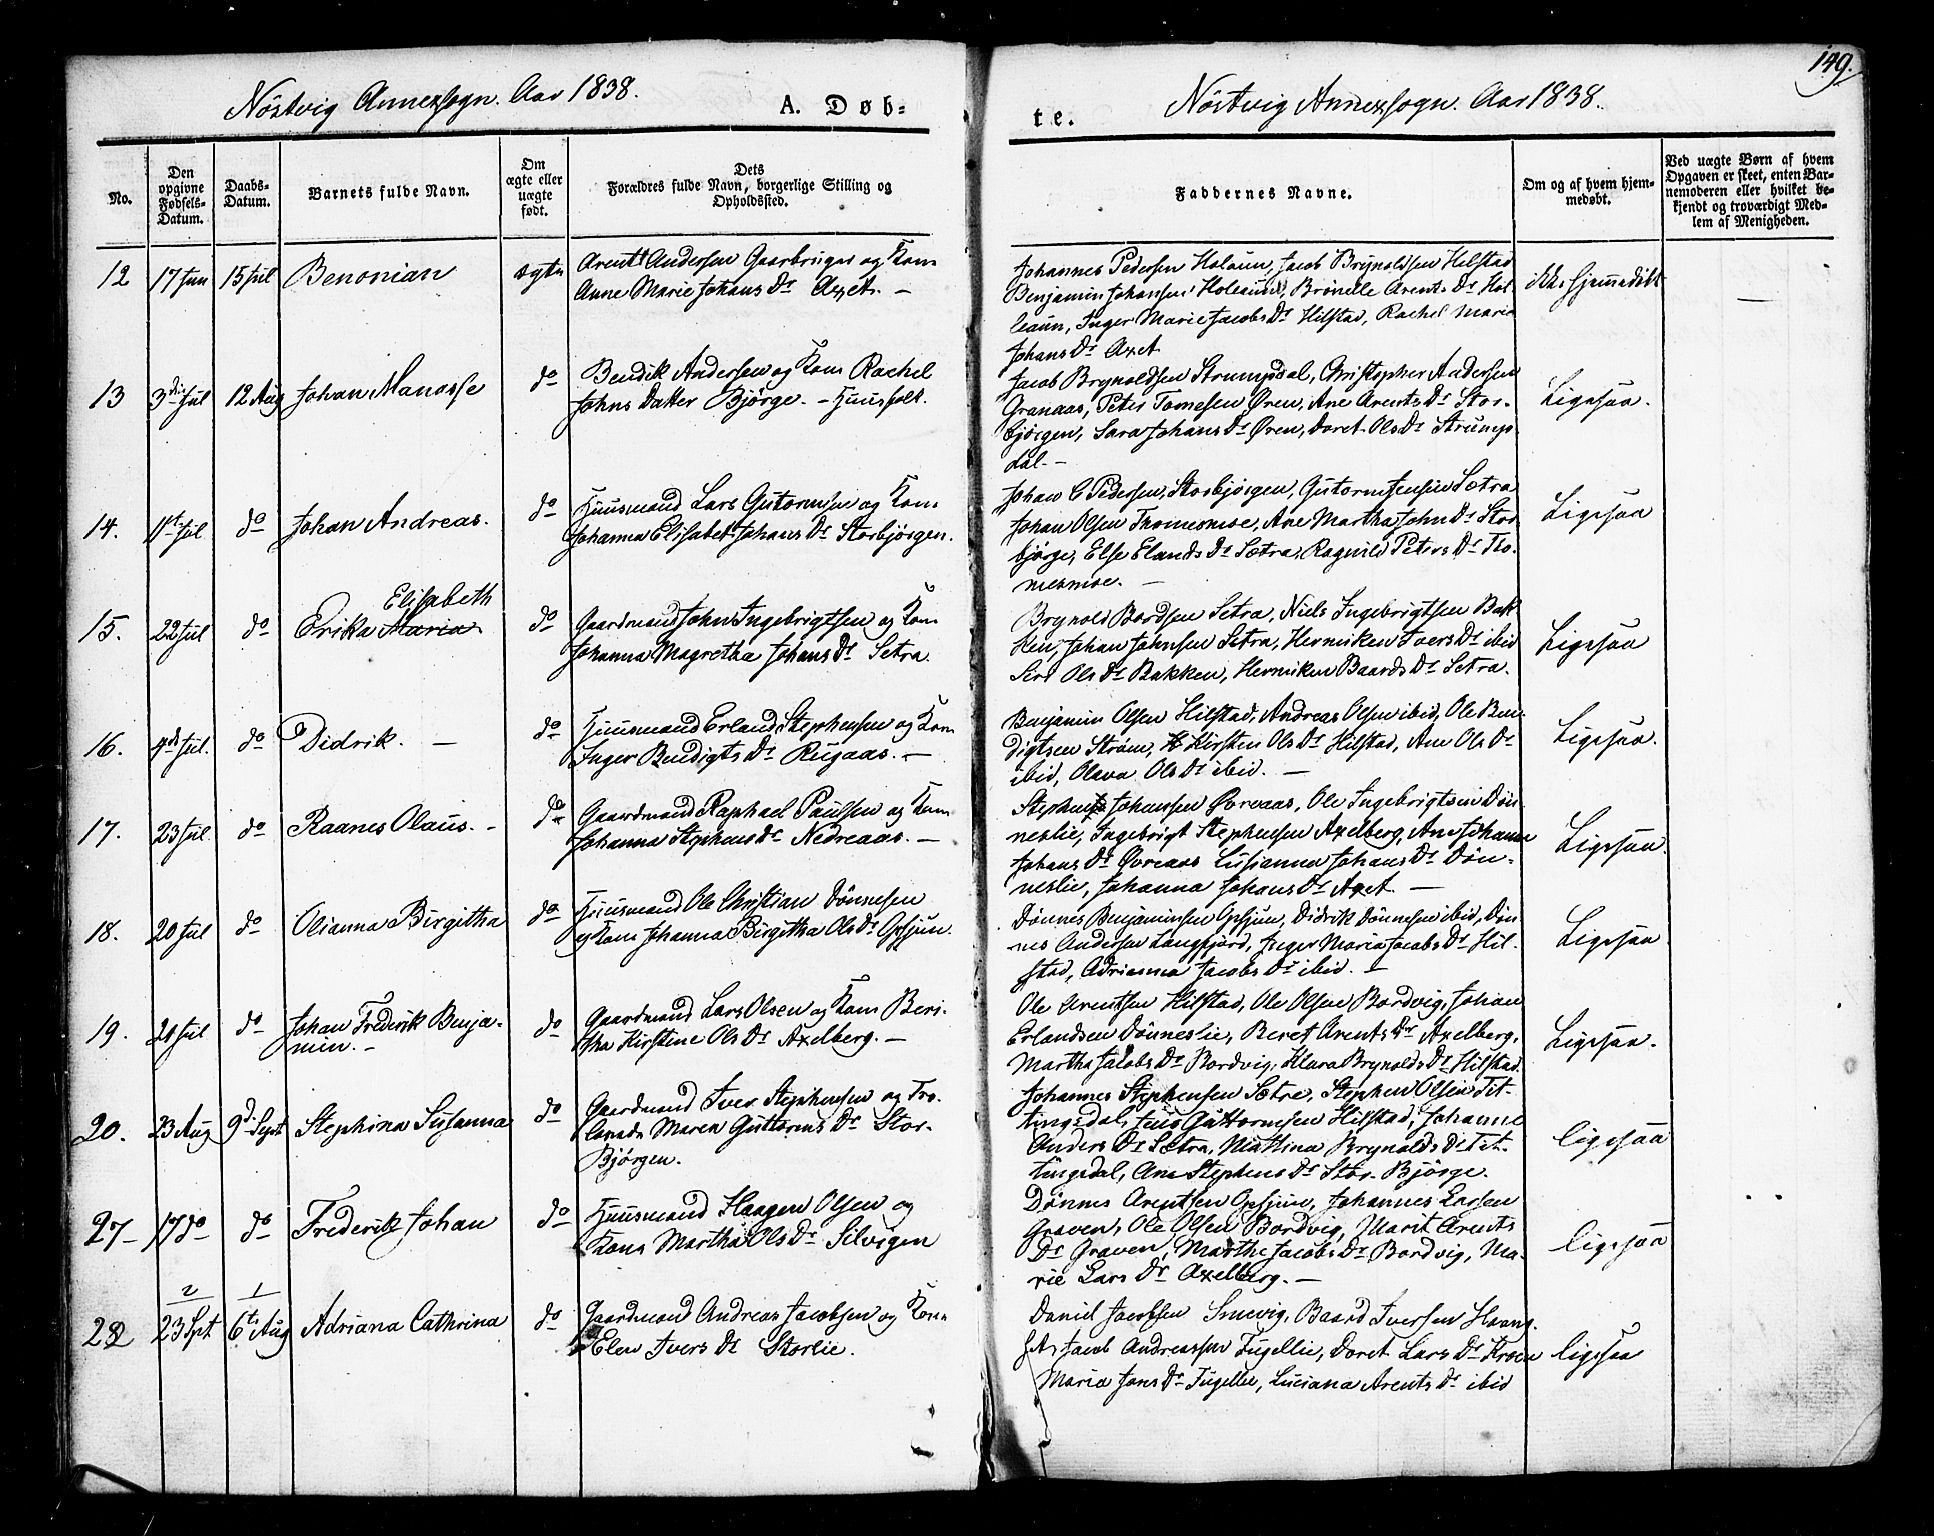 149.
Nöstvig Annexsogn. Aar 1838.
A. Døb=
No.
Den opgivne Fødsels-Datum.
Daabs-Datum.
Barnets fulde Navn.
Om ægte eller uægte født.
Dets Forældres fulde Navn, borgerlige Stilling og Opholdssted.
12 17 Jun 15 Jul Benonian ægte Arent Andersen Gaarbruger og Kone
Anne Marie Johans Dr Axet. —
13 3die Jul 12 Aug Johan Manasse do Bendik Andersen og Kone Rachel
Johns Datter Bjørge. — Huusfolk.
14. 1st Jul do Johan Andreas. do Huusmand Lars Gutormsen og Kone
Johanna Elisabet Johans Dr Storbjörgen.
Elisabeth
15. 22 Jul do Erika Maria do Gaardmand John Ingebrigtsen og Kone
Johanna Magretha Johans Dr Setra.
16. Jul. do Didrik. — do Huusmand Erland Stephensen og Kone
Inger Bendigts Dr Rugaas. —
17. 23 Jul do Raanes Olaus. - do Gaardmand Raphael Paulsen og Kone
Johanna Stephens Dr Nedreaas. —
18. 20 Jul do Olianna Birgitha do Huusmand Ole Christian Dönnesen
og Kone Johanna Birgitha Ols Dr Opsjun.
19. 21 Jul do Johan Frederik Benja-
min. - do Gaardmand Lars Olsen og Kone Beri-
tha Kirstine Ols Dr Axelberg. —
20. 23 Aug 9d Sept Stephina Susanna do Gaardmand Iver Stephensen og Tro-
lovede Maren Guttorms Dr Stor-
Bjørgen.
27 17 do do Frederik Johan do Huusmand Haagen Olsen og
Kone Martha Ols Dr Silvigen
2 1
22 23 Spt 6te Aug Adriana Cathrina do Gaardmand Andreas Jacobsen og Kone
Elen Ivers Dr Storlie.
Nöstvig Annexsogn. Aar 1838.
te.
Faddernes Navne.
Om og af hvem hjem-
medøbt.
Ved uægte Børn af hvem
Opgaven er skeet, enten Bar-
nemoderen eller hvilket be-
kjendt og troværdigt Med-
lem af Menigheden.
Johannes Pedersen Holaun, Jacob Brynoldsen Hilstad
Benjamin Johansen Holeaun, Brönelle Arents Dr Hol-
leaun, Inger Marie Jacobs Dr Hilstad, Rachel Maria
Johans Dr Axet
ikke hjemmedöbt —
Jacob Brynoldsen Strumpdal, Christopher Andersen
Granaas, Peter Tomesen Øren, Ane Arents Dr Stor-
björgen, Sara Johans Dr Øren, Doret Ols Dr Strump-
dal. —
Ligesaa.
Johan C Pedersen, Storbjörgen, Gutorm Jensen Sætra
Johan Olsen Thomesmoe, Ane Martha John Dr Stor
bjørge, Else Elands Dr Sætra, Ragnild Peters Dr Tho-
mesmoe. —
Ligesaa
Brynold Bordsen Setra, Niels Ingebrigtsen Bak
ken, Johan Johnsen Setra, Henniken Ivers Dr ibid
Seri Ols Dr Bakken, Henniken Baards Dr Setra.
Ligesaa
Benjamin Olsen Hilstad, Andreas Olsen ibid, Ole Ben-
digtsen Strøm, Kirsten Ols Dr Hilstad, Ane Ols Dr
ibid, Olava Ols Dr ibid. —
Ligesaa.
Stephen Johansen Øvreaas, Ole Ingebrigtsen Dön-
neslie, Ingebrigt Stephensen Axelberg, Ane Johanna
Johans Dr Øvreaas Lusianna Johans Dr Dön-
neslie, Johanna Johans Dr Axet. —
Ligesaa.
Dönnes Benjaminsen Opsjun, Didrik Dönnesen ibid, Dön
nes Andersen Langfjord, Inger Maria Jacobs Dr Hil-
stad, Adrianna Jacobs Dr ibid. —
Ligesaa
Ole Arentsen Hilstad, Ole Olsen Bordvig, Johan
Erlandsen Dönneslie, Beret Arents Dr Axelberg,
Martha Jacobs Dr Bordvig, Klara Brynolds Dr Hilstad.
Ligesaa.
Johannes Stephensen Sætre, Stephen Olsen Tit-
tingsdal, Jens Guttormsen Hilstad, Johanne
Anders Dr Sætra, Mattina Brynolds Dr Tit-
tingsdal, Ane Stephens Dr Stor-Bjørge.
ligesaa
Dønnes Arentsen Opsjun, Johannes Larsen
Graven, Ole Olsen Bordvig, Marit Arents
Dr Graven, Marthe Jacobs Dr Bordvig, Ma-
rie Lars Dr Axelberg. —
ligesaa
Daniel Jacobsen Smevig, Baard Iversen Haang-
Jacob Andreassen Fugellie, Doret Lars Dr Kroen
Maria Jons Dr Fugellie, Luciana Arents Dr ibid
ligesaa